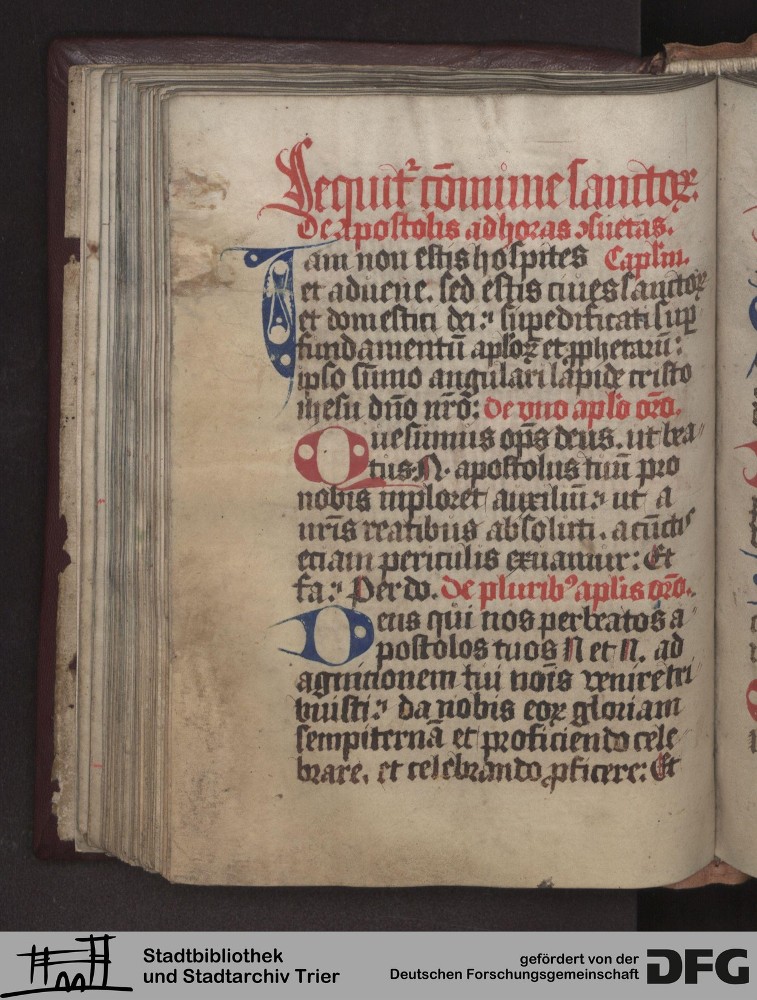 Sequit᷑ cōmune sanctoꝝ
De apostolis ad horas ↄsuetas.
Iam non estis hospites Capłm.
et aduene. sed estis ciues sanctoꝝ
et domestici dei: supedificati suꝑ
fundamentū aplōꝝ et ꝓphetarū:
ipso sūmo angulari lapide cristo
ihesu dn̄o nr̄o: de vno aplō or̄o.
Quesumus op̄s deus. ut bea
tus N. apostolus tuū pro
nobis imploret auxiliū: ut a
nr̄is reatibus absoluti. a cūctis
eciam periculis exuamur: Et
fa: Per do. de pluribꝰ aplis or̄o.
Deus qui nos per beatos a
postolos tuos N et N. ad
agnicionem tui nōis venire tri
buisti: da nobis eoꝝ gloriam
sempiternā et proficiendo cele
brare. et celebrando ꝓficere: Et
Stadtbibliothek
und Stadtarchiv Trier
gefördert von der
Deutschen Forschungsgemeinschaft
DFG